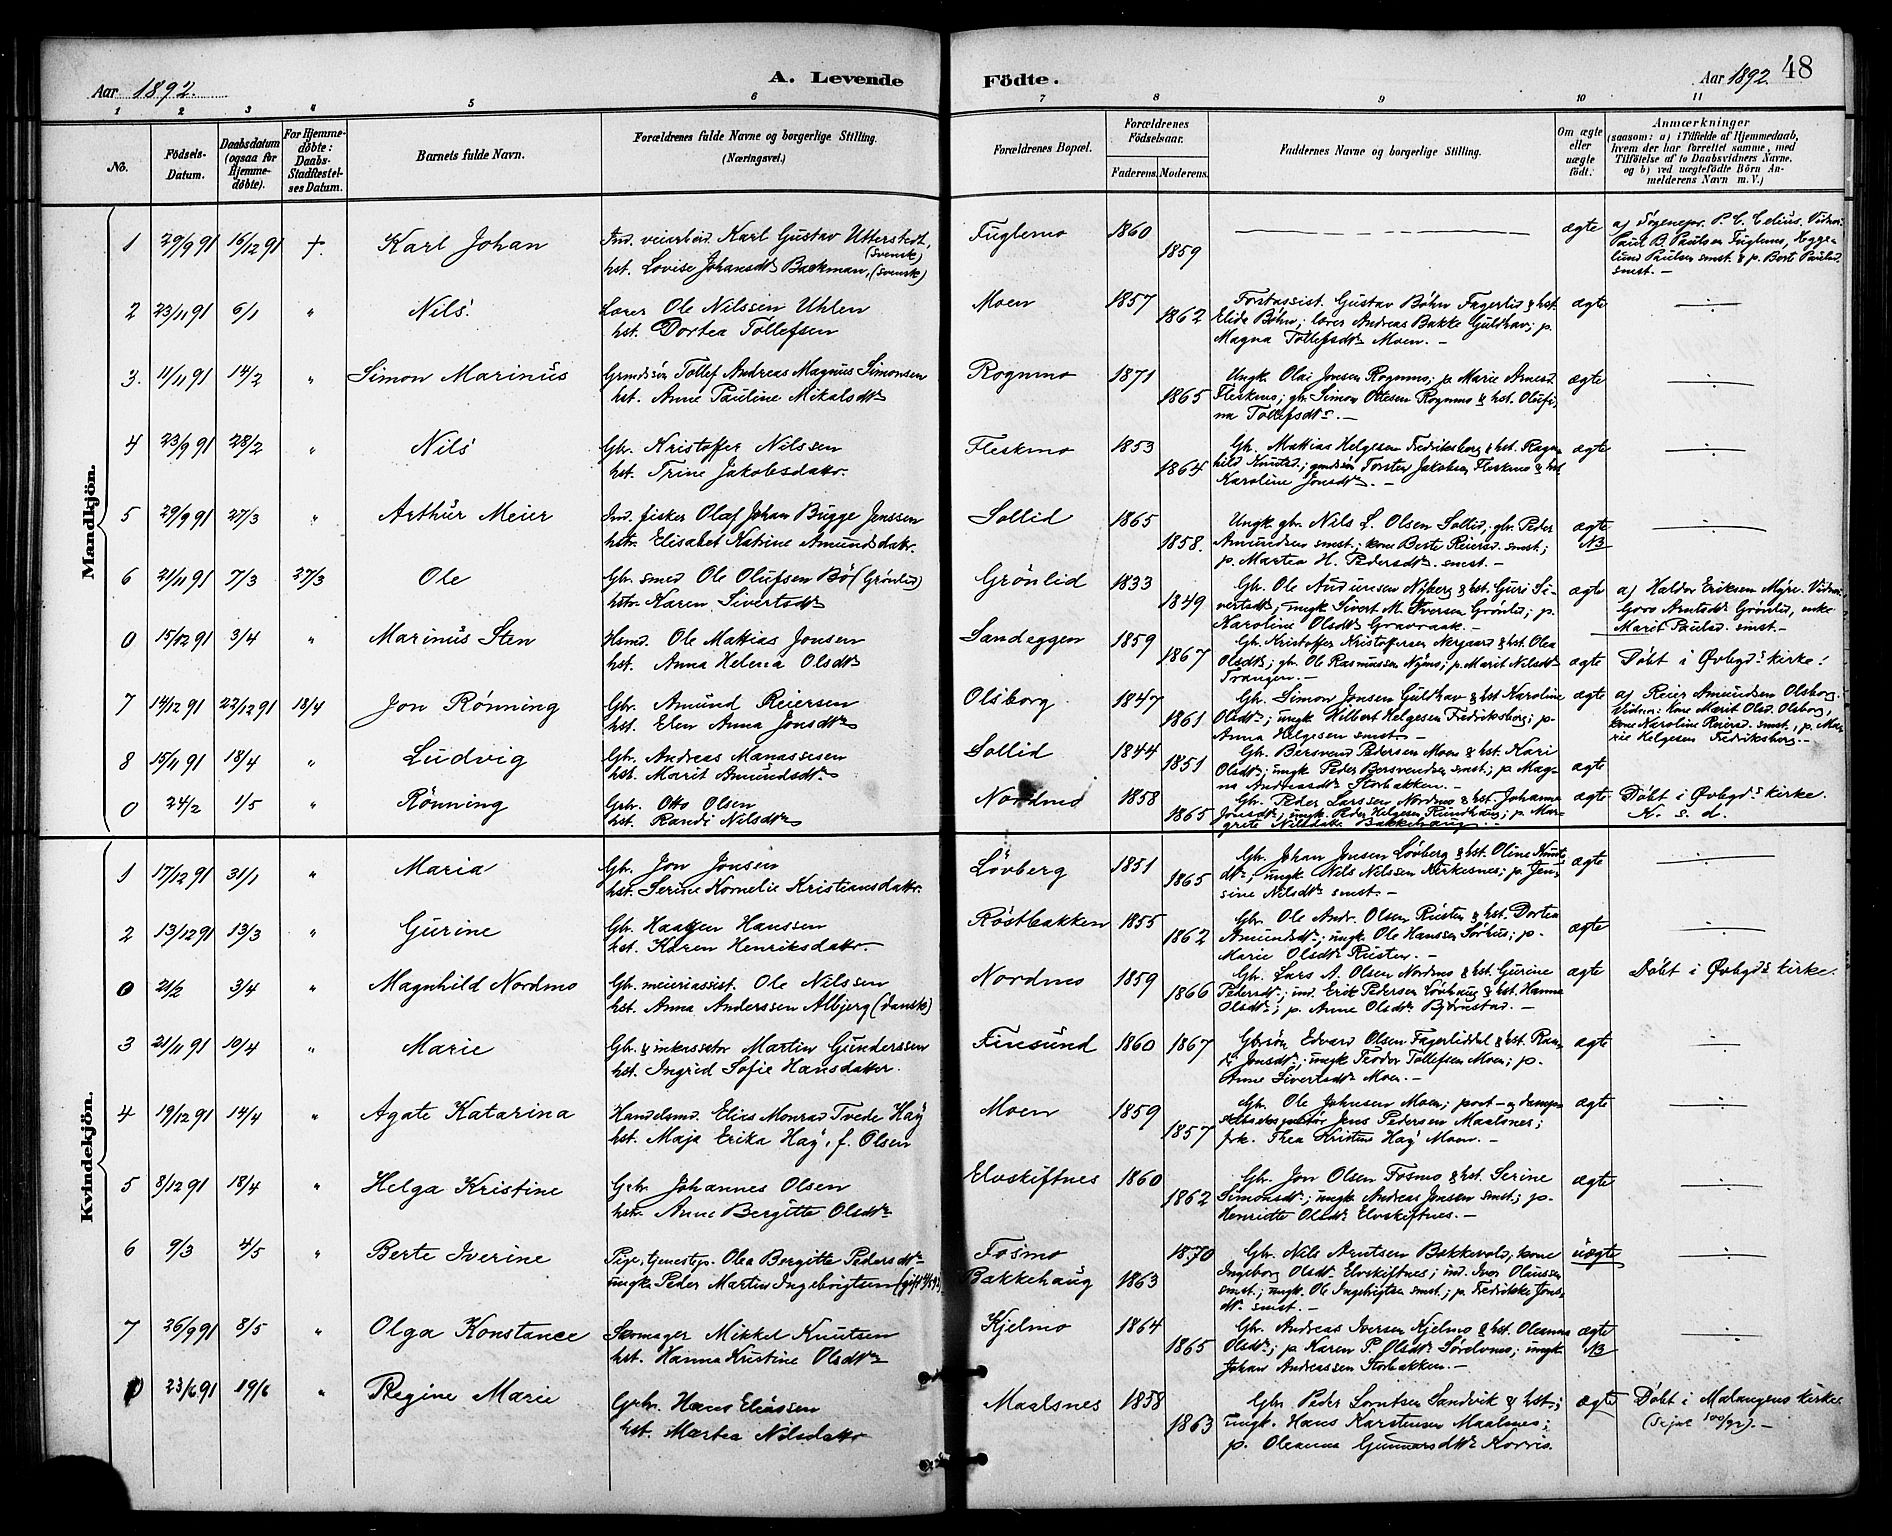 Aar 1892.
A. Levende Födte.
Aar 1892. 48
1 2 3 4 5 6 7 8 9 10 11
No.
Födsels-Datum.
Daabsdatum (ogsaa for Hjemmedöbte).
For Hjemmedöbte: Daabs-Stadfæstelses Datum.
Barnets fulde Navn.
Forældrenes fulde Navne og borgerlige Stilling. (Næringsvei.)
Forældrenes Bopæl.
Forældrenes Födselsaar.
Faderens. Moderens.
Faddernes Navne og borgerlige Stilling.
Om ægte eller uægte födt.
Anmærkninger
(saasom: a) i Tilfælde af Hjemmedaab, hvem der har forrettet samme, med Tilföielse af to Daabsvidners Navne, og b) ved uægtefödte Börn Anmelderens Navn m. V.)
Mandkjön.
1 29/9 91 16/12 91 +. Karl Johan
Ind. veiarbeid. Karl Gustav Utterstedt, (svensk)
hst. Lovise Johansdtr Backman, (svensk)
Fuglemo 1860 1859 — ægte
a) Sognepr. P. C. Celius. Vidner:
Paul B. Paulsen Fuglmo, Hegge-
lund Paulsen smst. & p. Berit Paulsd.
smst. —
2 23/11 91 6/1 " Nils.
Lærer Ole Nilssen Uhlen
hst. Dortea Tollefsen
Moen 1857 1862
Forstassist. Gustav Bøhn Fagerlid & hst.
Elida Bøhn; lærer Andreas Bakke Guldhav; p.
Magna Tollefsdtr Moen. —
ægte
3. 11/11 91 14/2 " Simon Marinus
Grmdsøn Tollef Andreas Magnus Simonsen
hst. Anne Pauline Mikalsdtr
Rognmo 1871 1865
Ungk. Olai Jonsen Rognmo; p. Marie Arnesd.
Fleskmo; gbr. Simon Ottesen Rognmo & hst. Olufi-
na Tollefsdtr. —
ægte
4 23/9 91 28/2 " Nils
Gbr. Kristoffer Nilssen
hst. Trine Jakobsdatr.
Fleskmo 1853 1864
Gbr. Mattias Helgesen Fredriksborg & hst. Ragn-
hild Knutsd.; grmdsøn Torsten Jakobsen Fleskmo & hst
Karoline Jonsdtr. —
ægte
5 29/9 91 27/3 " Arthur Meier
Ind. fisker Olaf Johan Bugge Jenssen
hstr. Elisabet Katrine Amundsdatr.
Sollid 1865 1858.
Ungk. gbr. Nils L. Olsen Sollid; gbr. Peder
Amundsen smst.; kone Berte Reiersd. smst.;
p. Martea H. Pedersdtr. smst. —
ægte
NB
6 21/11 91 7/3 27/3 Ole
Gbr. smed Ole Olufsen Bö (Grönlid)
hstr. Karen Sivertsdtr
Grönlid 1833 1849
Gbr. Ole Audunsen Nyberg & hst. Guri Si-
vertsdtr; ungk. Sivert M. Iversen Grønlid; p.
Karoline Olsdtr Gravraak. —
ægte
a) Haldor Eriksen Myre. Vidner:
Goro Arntsdtr Grønlid, enke
Marit Paulsd. smst. —
0 15/12 91 3/4 " Marinus Sten
Hsmd. Ole Mattias Jonsen
hst. Anna Helena Olsdtr
Sandeggen 1859 1867
Gbr. Kristoffer Kristofersen Nergaard & hst. Olea
Olsdtr; gbr. Ole Rasmussen Nymo; p. Marit Nilsdtr
Trangen. —
ægte Döbt i Øvbygds kirke.
7 14/12 91 22/12 91 18/4 Jon Rönning
Gbr. Amund Reiersen
hst. Elen Anna Jonsdtr
Olsborg 1847 1861
Gbr. Simon Jonsen Guldhav & hst Karoline
Olsdtr; ungk. Hilbert Helgesen Fredriksborg; p.
Anna Helgesen smst. —
ægte
a) Reier Amundsen Olsborg.
Vidner: Kone Marit Olsd. Olsborg,
kone Karoline Reiersd. smst., p. Ma-
rie Helgesen Fredriksborg. —
8 15/11 91 18/4 " Ludvig
Gbr. Andreas Manassesen
hst. Marit Amundsdtr
Sollid 1844 1851
Gbr. Bersvend Pedersen Moen & hst. Kari
Olsdtr; ungk. Peder Bersvendsen smst.; p. Mag-
na Andreasdtr Storbakken. —
ægte
0 24/2 1/5 " Rönning
Gbr. Otto Olsen
hst. Randi Nilsdtr
Nordmo 1858 1865
Gbr. Peder Larssen Nordmo & hst. Johanna
Jonsdtr; ungk. Peder Helgesen Rundhaug; p. Mar-
grete Nilsdatr Bakkehaug. —
ægte Döbt i Øvbygds kirke.
K. s. d.
Kvindekjön.
1 17/12 91 31/1 " Maria
Gbr. Jon Jonsen
hst. Serine Kornelie Kristiansdatr.
Lövberg 1851 1865
Gbr. Johan Jonsen Løvberg & hst. Oline Knuts-
dtr; ungk. Nils Nilssen Kirkesnes; p. Jen-
sine Nilsdtr smst. —
ægte
2 13/12 91 13/3 " Gurine
Gbr. Haagen Hanssen
hst. Karen Henriksdatr.
Røstbakken 1855 1862
Gbr. Ole Andr. Olsen Rusten & hst. Dortea
Amundsdtr; ungk. Ole Hanssen Sørhus; p.
Marie Olsdtr Rusten. —
ægte
0 21/2 3/4 " Magnhild Nordmo
Gbr. meieriassist. Ole Nilssen
hst. Anna Anderssen Albjerg (dansk)
Nordmo 1859 1866
Gbr. Lars A. Olsen Nordmo & hst. Gurine
Pedersdtr; ind. Erik Pedersen Løvhaug & hst. Hanna
Olsdtr; p. Anne Olsdtr Bjørnstad. —
ægte Döbt i Øvbygds kirke.
3 21/11 91 10/4 " Marie
Gbr. & inkassator Martin Gunderssen
hst. Ingrid Sofie Hansdatter.
Finsund 1860 1867
Gbrsøn Edvard Olsen Fagerliddal & hst. Ran-
di Jonsdtr; ungk. Teodor Tollefsen Moen; p.
Anne Sivertsdtr Moen. —
ægte
4 19/12 91 14/4 " Agate Katarina
Handelsmd. Elias Monrad Tvede Hay
hst. Maja Erika Hay, f. Olsen
Moen 1859 1857
Gbr. Ole Johnsen Moen; post- og damps-
kibsexpeditør Jens Pedersen Maalsnes;
frk. Thea Kristine Hay Moen. —
ægte
5 8/12 91 18/4 " Helga Kristine
Gbr. Johannes Olsen
hstr. Anne Bergitte Olsdtr
Elvskiftnes 1860 1862
Gbr. Jon Olsen Fosmo & hst. Serine
Simonsdtr; ungk. Andreas Jonsen smst.; p.
Henriette Olsdtr Elvskiftnes. —
ægte
6 9/3 4/5 " Berte Iverine
Pige, tjenestep. Olea Bergitte Pedersdtr
ungk. Peder Martin Ingebrigtsen
Fosmo
Bakkehaug 1863 1870
Gbr. Nils Arntsen Bakkevold; kone
Ingeborg Olsdtr Elvskiftnes; ind. Iver Olaussen
smst.; ungk. Ole Ingebrigtsen smst.; p. Fredrikke Jons-
dtr smst. —
uægte
7 26/9 91 8/5 " Olga Konstance
Mikkel Knutsen
hst. Hanna Kristine Olsdtr
Kjelmo 1864 1865
Gbr. Andreas Iversen Kjelmo & hst. Oleanna
Olsdtr; p. Karen P. Olsdtr Sørelvmo; ungk.
Johan Andreassen Storbakken. —
ægte
NB
0 23/6 91 19/6 " Regine Marie
Gbr. Hans Eliassen
hst. Martea Nilsdatr
Maalsnes 1858 1863
Gbr. Peder Lorntsen Sandvik & hst;
ungk. Hans Karstensen Maalsnes;
p. Oleanna Gunnarsdtr Korvis.
ægte Döbt i Malangens kirke